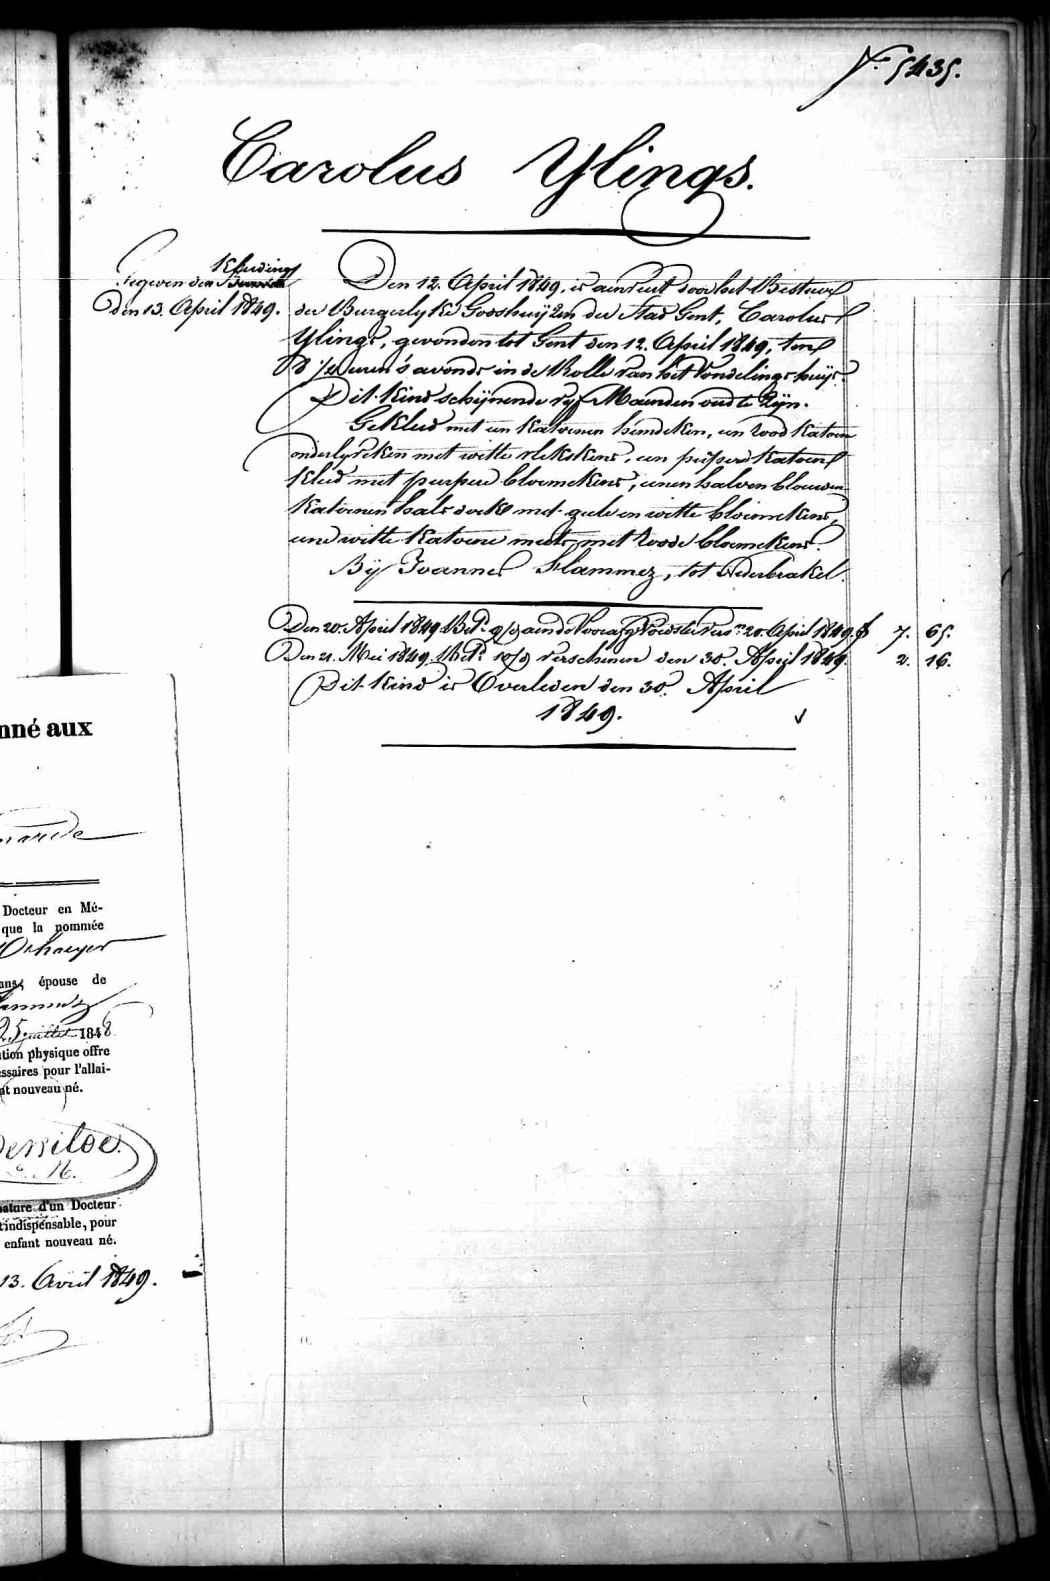 N.º 5435.
Carolus Ylings.
Kleeding
Gegeven den
Den 13. April 1849.
Den 12. April 1849, is aenveert door het Bestuer
der Burgerlyke Godshuijzen der Stad Gent, Carolus
Ylings, gevonden tot Gent den 12. April 1849, ten
8 ½ uren 's avonds in de Rolle van het Vondelingshuijs.
Dit Kind schijnende vyf Maenden oud te Zijn.
Gekleed met een katoenen hemdeken, een rood katoen
onderlyfken met witte vlekskens, een purper katoen
kleed met purpere bloemekens, eenen halven blauwen
katoenen hals doek met geele en witte bloemekens,
eene witte katoene muts met roode bloemekens.
Bij Joannes Flammez, tot Nederbrakel.
Den 20. April 1849 Bet. 9/9 aen de Voedster Vers. 20. April 1849. f 7. 65.
Den 21. Mei 1849. Bet. 10/9 verschenen den 30. April 1849. 2. 16.
Dit Kind is Overleden den 30. April
1849.
nné aux
Docteur en Mé-
que la nommée
ans, épouse de
25 juillet 1848
tion physique offre
ssaires pour l'allai-
nt nouveau né.
nature d'un Docteur
t indispensable, pour
enfant nouveau né.
13. Avril 1849.